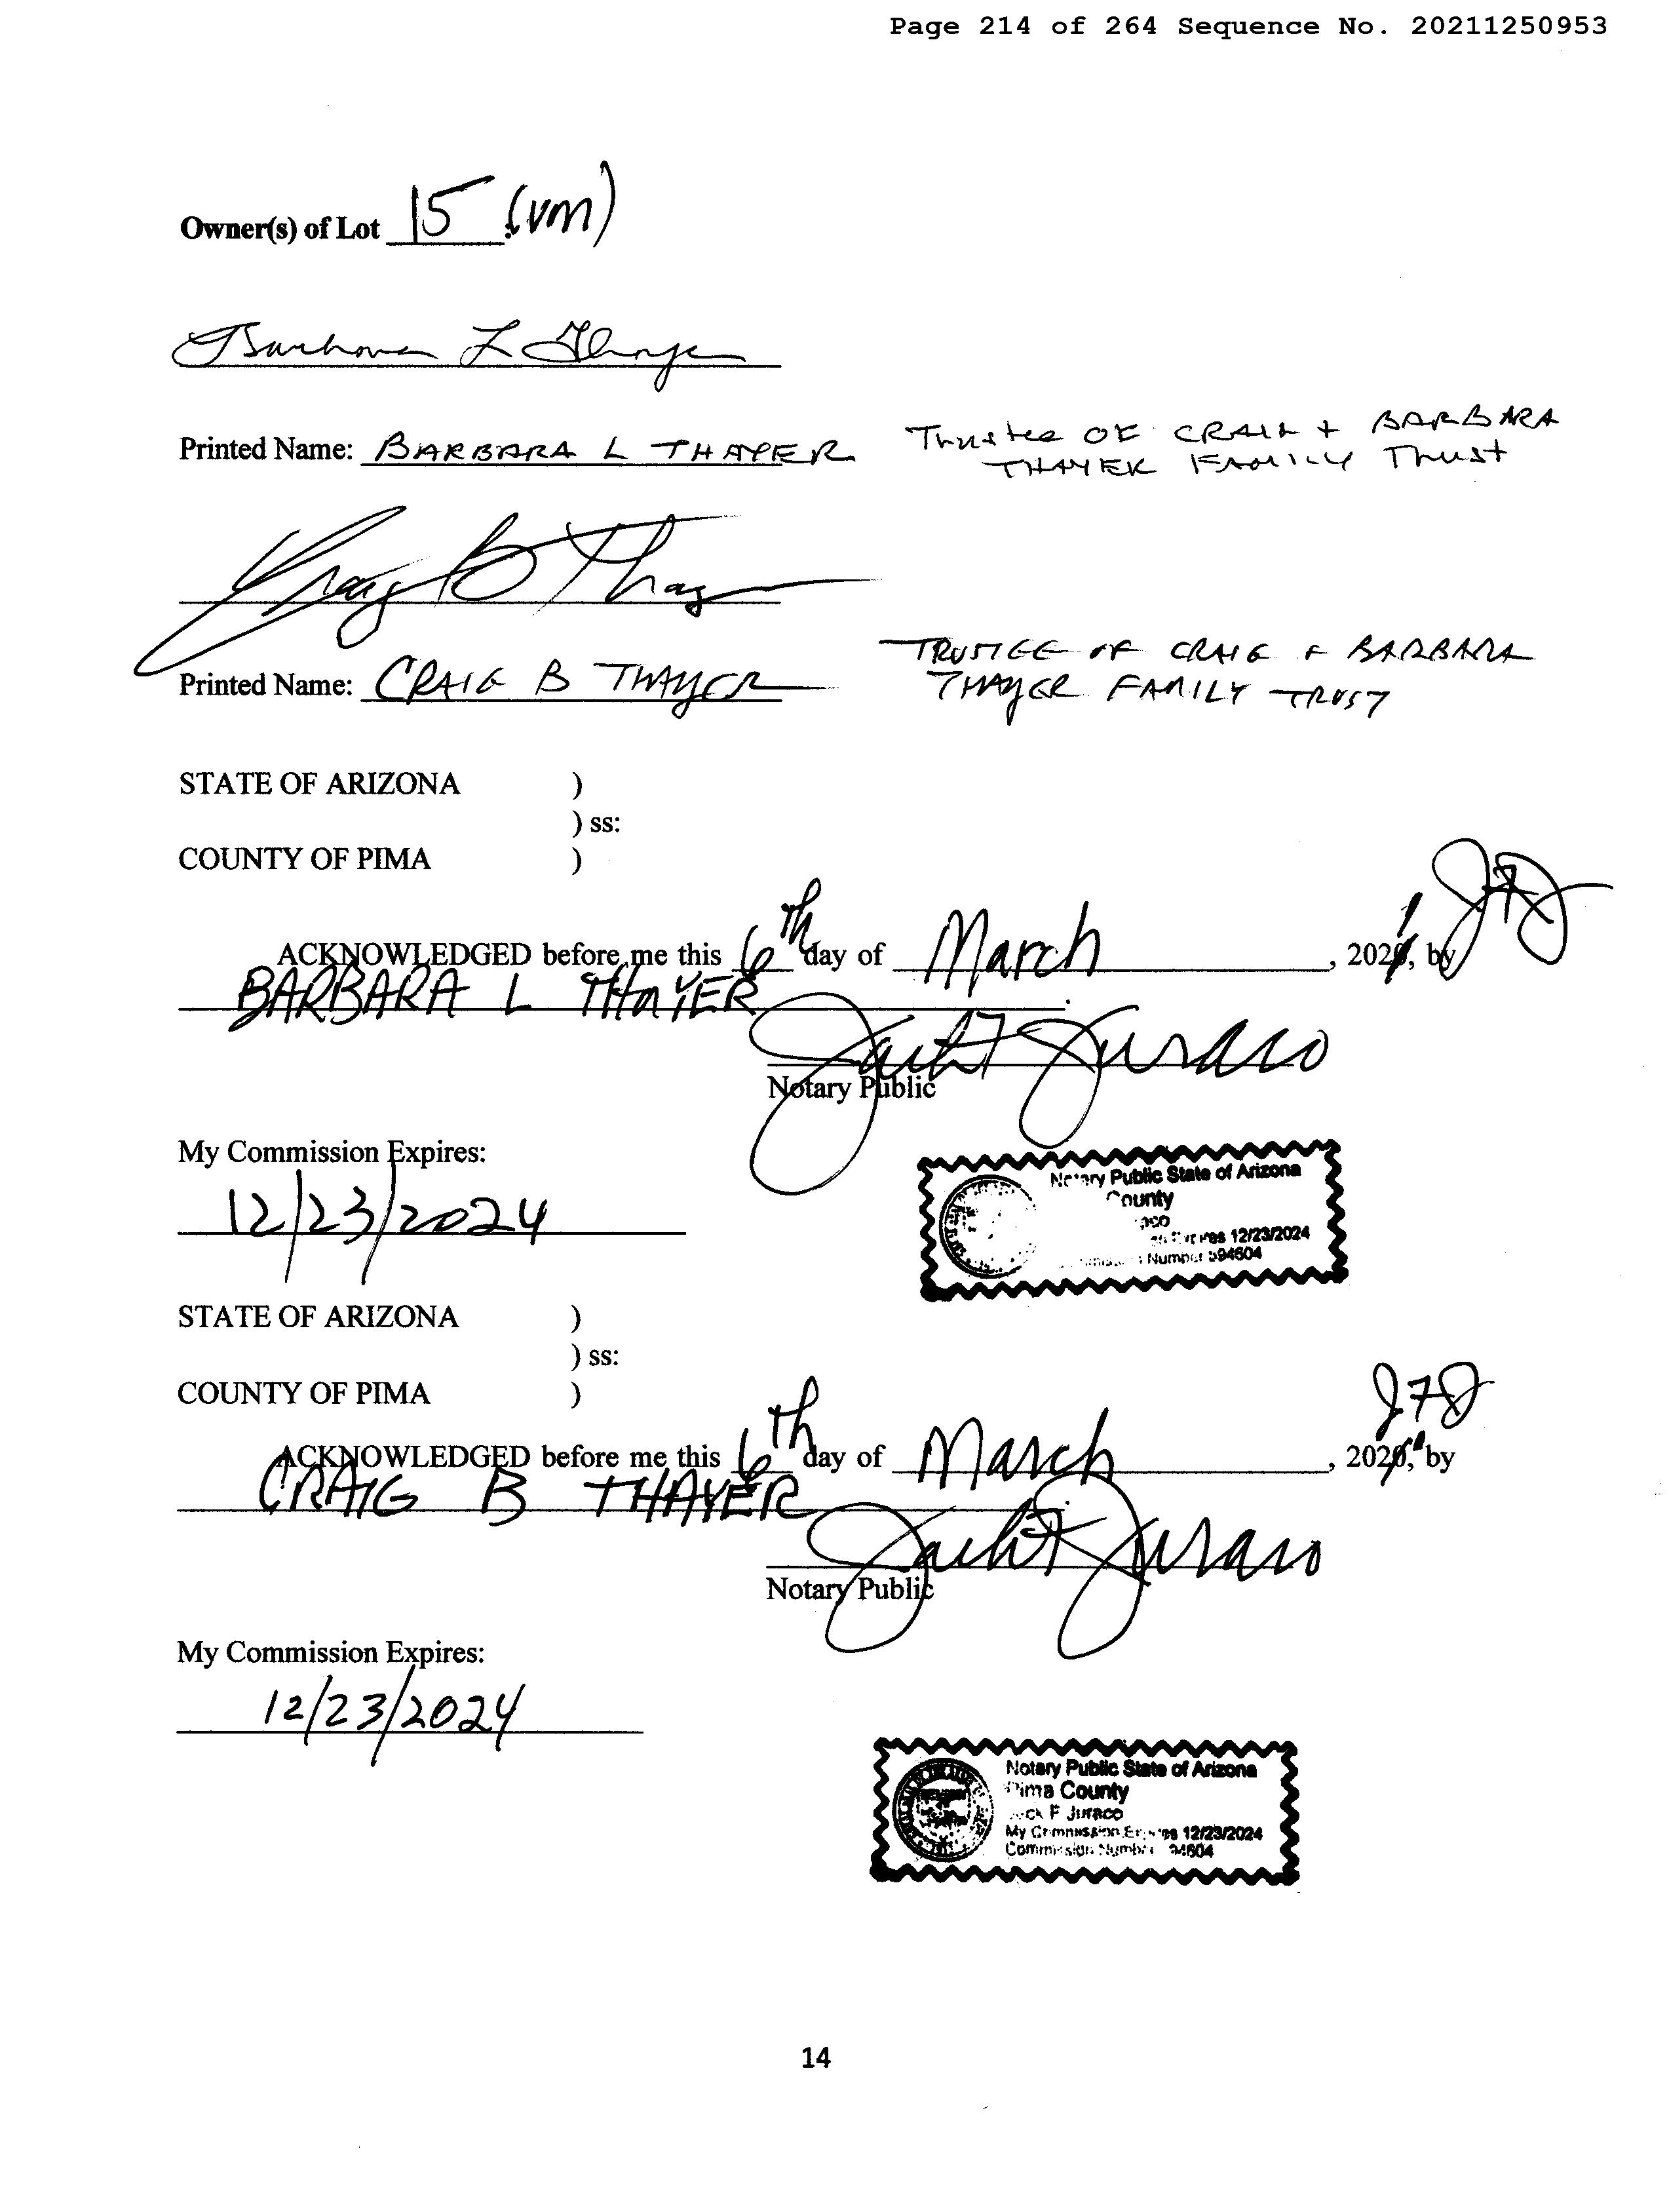 Page 214 of 264 Sequence No. 20211250953
Owner(s) of Lot 15 (VM)
Barbara L Thayer
Printed Name: BARBARA L THAYER Trustee OF CRAIG + BARBARA
THAYER FAMILY Trust
Craig B Thayer
Printed Name: CRAIG B THAYER TRUSTEE OF CRAIG & BARBARA
THAYER FAMILY TRUST
STATE OF ARIZONA )
) ss:
COUNTY OF PIMA )
JFJ
ACKNOWLEDGED before me this 6th day of March, 2021, by
BARBARA L THAYER.
Jack F Juraco
Notary Public
My Commission Expires:
12/23/2024
Notary Public State of Arizona
County
12/23/2024
Number
STATE OF ARIZONA )
) ss:
COUNTY OF PIMA )
JFJ
ACKNOWLEDGED before me this 6th day of March, 2021, by
CRAIG B THAYER.
Jack F Juraco
Notary Public
My Commission Expires:
12/23/2024
Notary Public State of Arizona
Pima County
F Juraco
My Commission Expires 12/23/2024
Commission Number
14